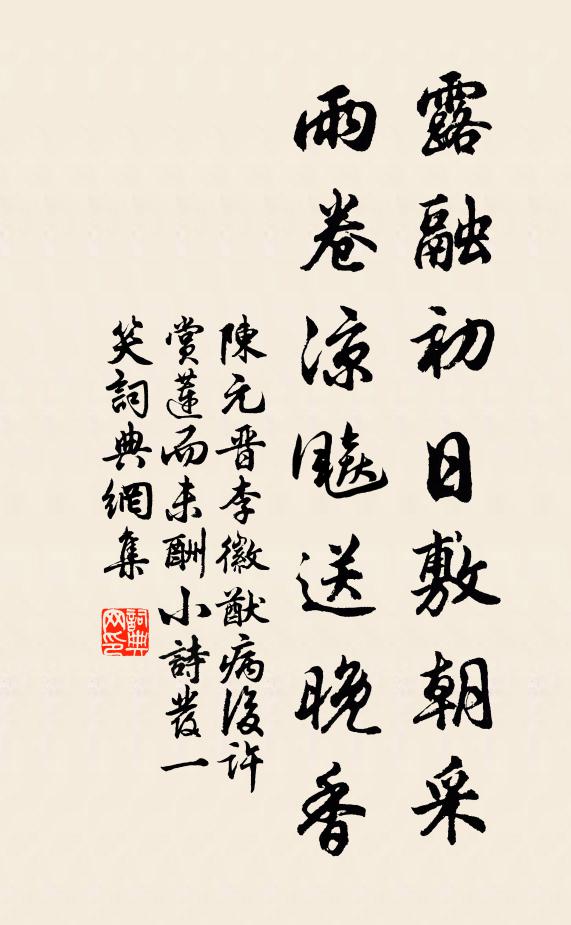 露融初日敷朝采
雨卷涼飇送晚香
陳元晋李徽猷病後許
賞蓮而未酬小詩發一
笑詞典網集
詞典网印